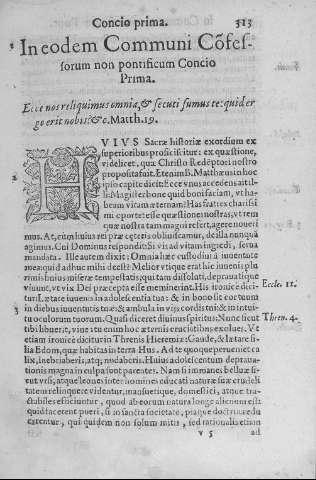 Concio prima. 513
In eodem Communi Cõfes-
sorum non pontificum Concio
Prima.
Ecce nos reliquimus omnia, & secuti sumus te: quid er
go erit nobis? &c. Matth. 19.
HVIVS Sacræ historiæ exordium ex
superioribus proficiscitur: ex quæstione,
videlicet, quæ Christo Redẽptori nostro
proposita fuit. Etenim B. Matthæus in hoc
ipso capite dicit: Ecce vnus accedens ait il-
li: Magister bone quid boni faciam, vt ha-
beam vitam æternam? Has fratres charissi
mi oportet esse quæstiones nostras, vt rem
quæ nostra tam magni refert, agere noueri
mus. At, cum huius rei præ cæteris obliuiscamur, de illa nunquã
agimus. Cui Dominus respondit: Si vis ad vitam ingredi, serua
mandata. Ille autem dixit: Omnia hæc custodiui à iuuentute
mea: quid adhuc mihi deest? Melior vtique erat hic iuuenis plu
rimis huius miseræ tempestatis, qui tam dissolutè, deprauatè que
viuunt, vt vix Dei præcepta esse meminerint. His ironicè dici-
tur: Lætare iuuenis in adolescentia tua: & in bono sit cor tuum
in diebus iuuentutis tuæ: & ambula in vijs cordis tui: & in intui-
tu oculorum tuorum. Quasi diceret diuinus spiritus: Nunc sicut
tibi libuerit, viue: at tu enim hoc æternis cruciatibus exolues. Vt
etiam ironicè dicitur in Threnis Hieremiæ: Gaude, & lætare fi-
lia Edom, quæ habitas in terra Hus. Ad te quoque perueniet ca
lix, inebriaberis, atq; nudaberis. Huius adolescentum deprauα-
tionis magna in culpa sunt parentes. Nam si immanes belluæ, si-
cut vrsi, atque leones inter homines educati naturæ suæ crudeli
tatem relinquere videntur, mansuetique, domestici, atque tra-
ctabiles efficiuntur, quod ab eorum natura longè alienum est:
quid facerent pueri, si in sancta societate, piaque doctrina edu
carentur, qui quidem non solum mitis, sed rationalis etiam
V 5 ad
Eccles. 11.
Thren. 4.